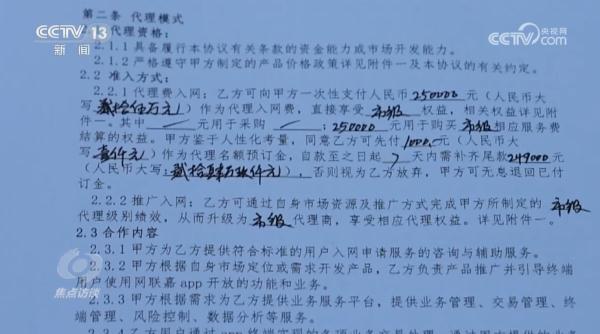 CCTV 13
新闻
CCTV.com 央视网
第二条 代理模式
代理资格：
2.1.1 具备履行本协议有关条款的资金能力或市场开发能力。
2.1.2 严格遵守甲方制定的产品价格政策详见附件一及本协议的有关约定。
2.2 准入方式：
2.2.1 代理费入网：乙方可向甲方一次性支付人民币 250000 元（人民币大
写 贰拾伍万元）作为代理入网费，直接享受 市级 权益，相关权益详见附
件一。其中 / 元用于采购 / ；250000 元用于购买 市级 相应服务费
结算的权益。甲方鉴于人性化考量，同意乙方可先付 1000 元（人民币大
写 壹仟元）作为代理名额预订金，自款至之日起 7 天内需补齐尾款 249000 元
（人民币大写：贰拾肆万玖仟元），否则视为乙方放弃，甲方可无息退回已付
订金。
2.2.2 推广入网：乙方可通过自身市场资源及推广方式完成甲方所制定的 市级
代理级别绩效，从而升级为 市级 代理商，享受相应代理权益。详见附件一。
2.3 合作内容
2.3.1 甲方为乙方提供符合标准的用户入网申请服务的咨询与辅助服务。
2.3.2 甲方根据自身市场定位或需求开发产品，乙方负责产品推广并引导终端
用户使用网联嘉 app 开放的功能和业务。
2.3.3 甲方根据需求为乙方提供业务服务平台，提供业务管理、交易管理、终
端管理、风险控制、数据分析等服务。
焦点访谈